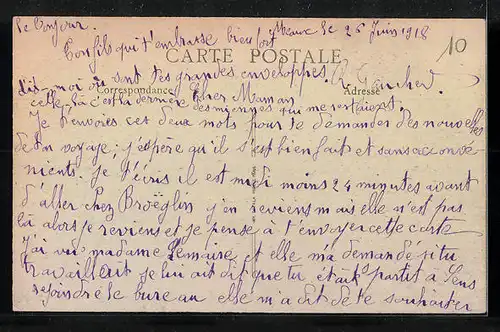 le bonjour.
Ton fils qui t'embrasse bien fort
Meaux le 26 Juin 1918
10
CARTE POSTALE
dis-moi où sont tes grandes enveloppes.
Correspondance
Adresse
celle là c'est la dernière des miennes qui me restaient.
Chère Maman
Je t'envoies ces deux mots pour te demander des nouvelles
de ton voyage; j'espère qu'il s'est bien fait et sans inconvé-
nients. Je t'écris il est midi moins 24 minutes avant
d'aller chez Broëglin j'en reviens mais elle n'est pas
là alors je reviens et je pense à t'envoyer cette carte
J'ai vu madame Lemaire et elle m'a demandé si tu
travaillait je lui ait dit que tu était partit à Sens
rejoindre le bureau elle m'a dit de te souhaiter